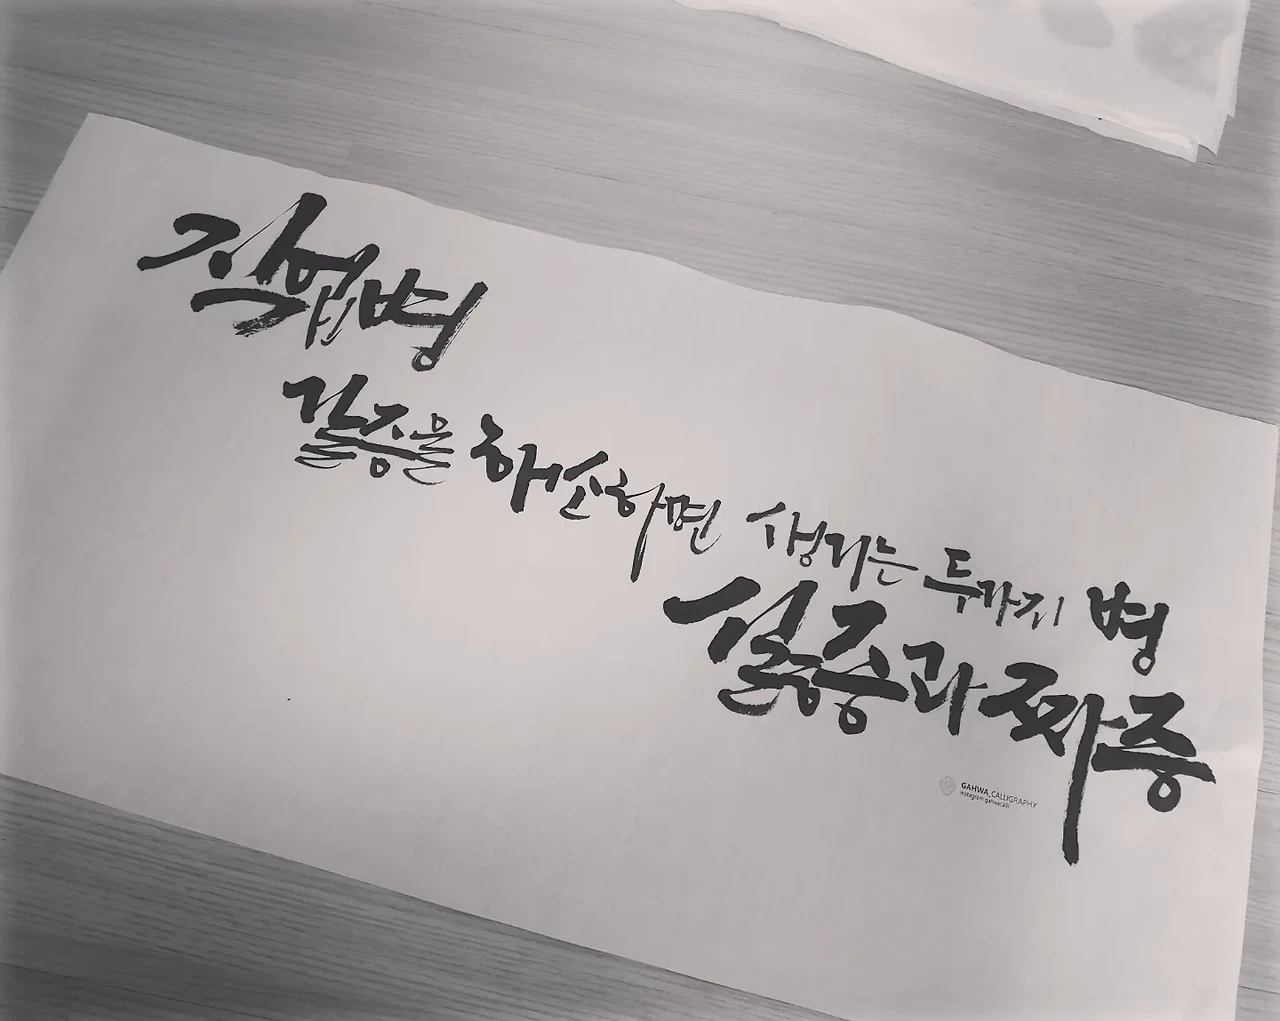 직업병
갈증을 해소하면 생기는 두가지 병
싫증과 짜증
GAHWA_CALLIGRAPHY
instagram:gahwacalli